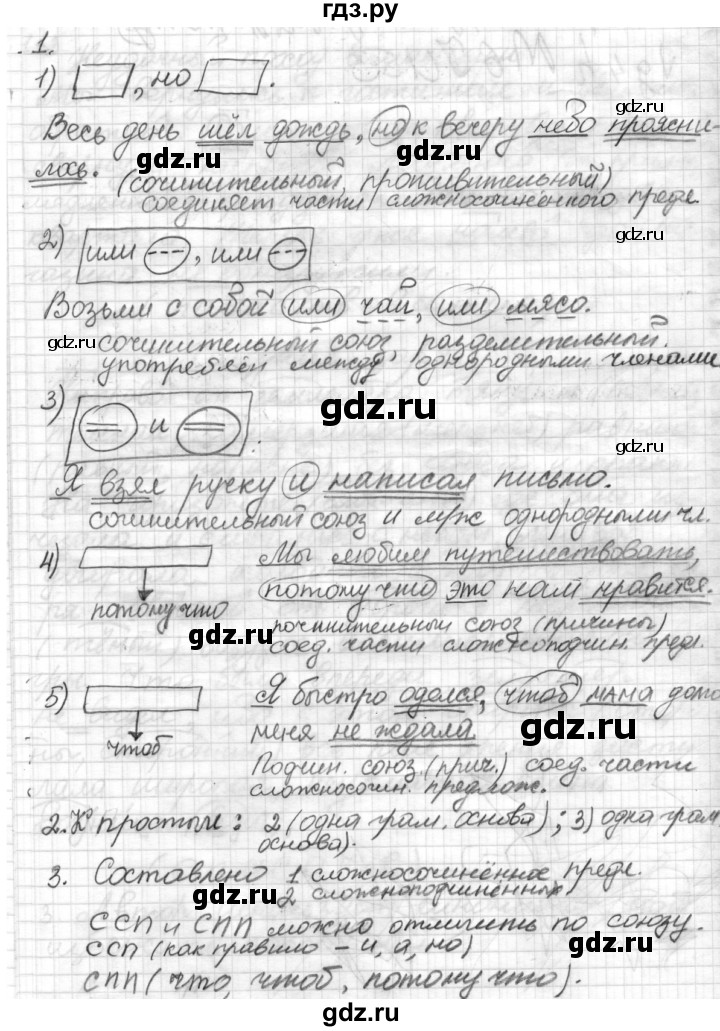 гдз.ру
1.
1) , но .
Весь день шёл дождь, но к вечеру небо проясни-
лось. (сочинительный, противительный)
соединяет части сложносочинённого предл.
2) или , или
Возьми с собой или чай, или мясо.
сочинительный союз, разделительный.
употреблён между однородными членами
3) и .
Я взял ручку и написал письмо.
сочинительный союз и мрж однородными чл.
4) Мы любим путешествовать,
потому что это нам нравится.
потому что
починительный союз (причины)
соед. части сложноподчин. предл.
5) Я быстро оделся, чтоб мама долго
меня не ждала.
чтоб
Подчин. союз (прич.) соед. части
сложносочин. предлож.
2. К простым: 2 (одна грам. основа); 3) одна грам
основа).
3. Составлено 1 сложносочинённое предл.
2 сложноподчинённых
ССП и СПП можно отличить по союзу.
ССП (как правило – и, а, но)
СПП (что, чтоб, потому что).
gdz.ru
gdz.ru
gdz.ru
gdz.ru
gdz.ru
gdz.ru
gdz.ru
gdz.ru
gdz.ru
gdz.ru
gdz.ru
gdz.ru
gdz.ru